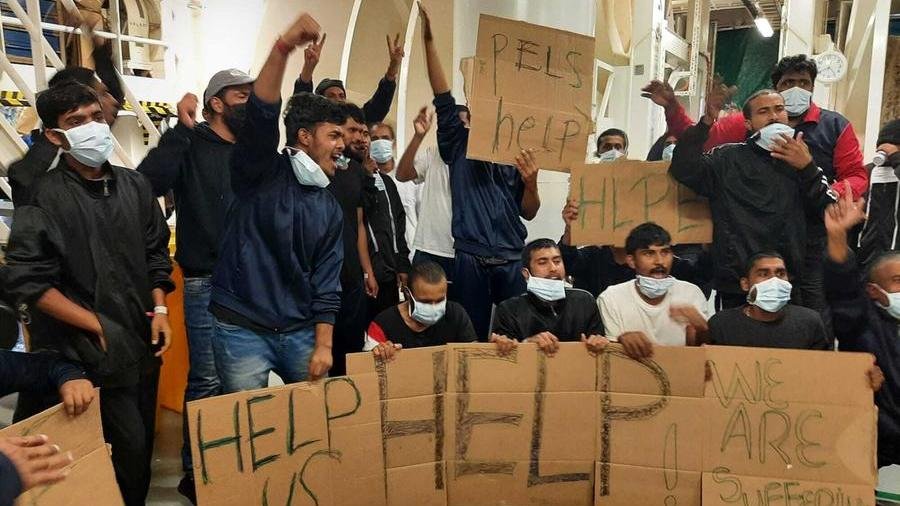 PELS
help
HLPE
HELP
US
HELP!
WE
ARE
SUFFERIN